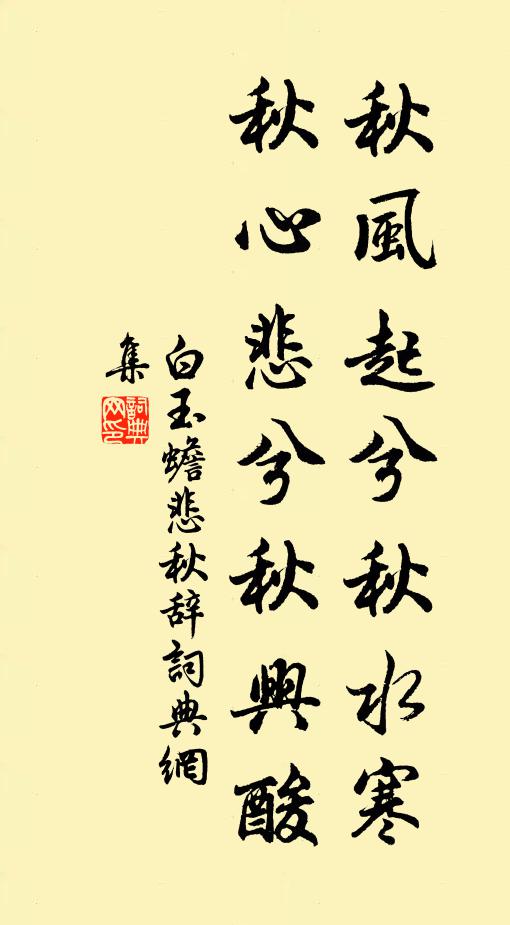 秋風起兮秋水寒
秋心悲兮秋興酸
白玉蟾悲秋辞詞典網
集
詞典网印